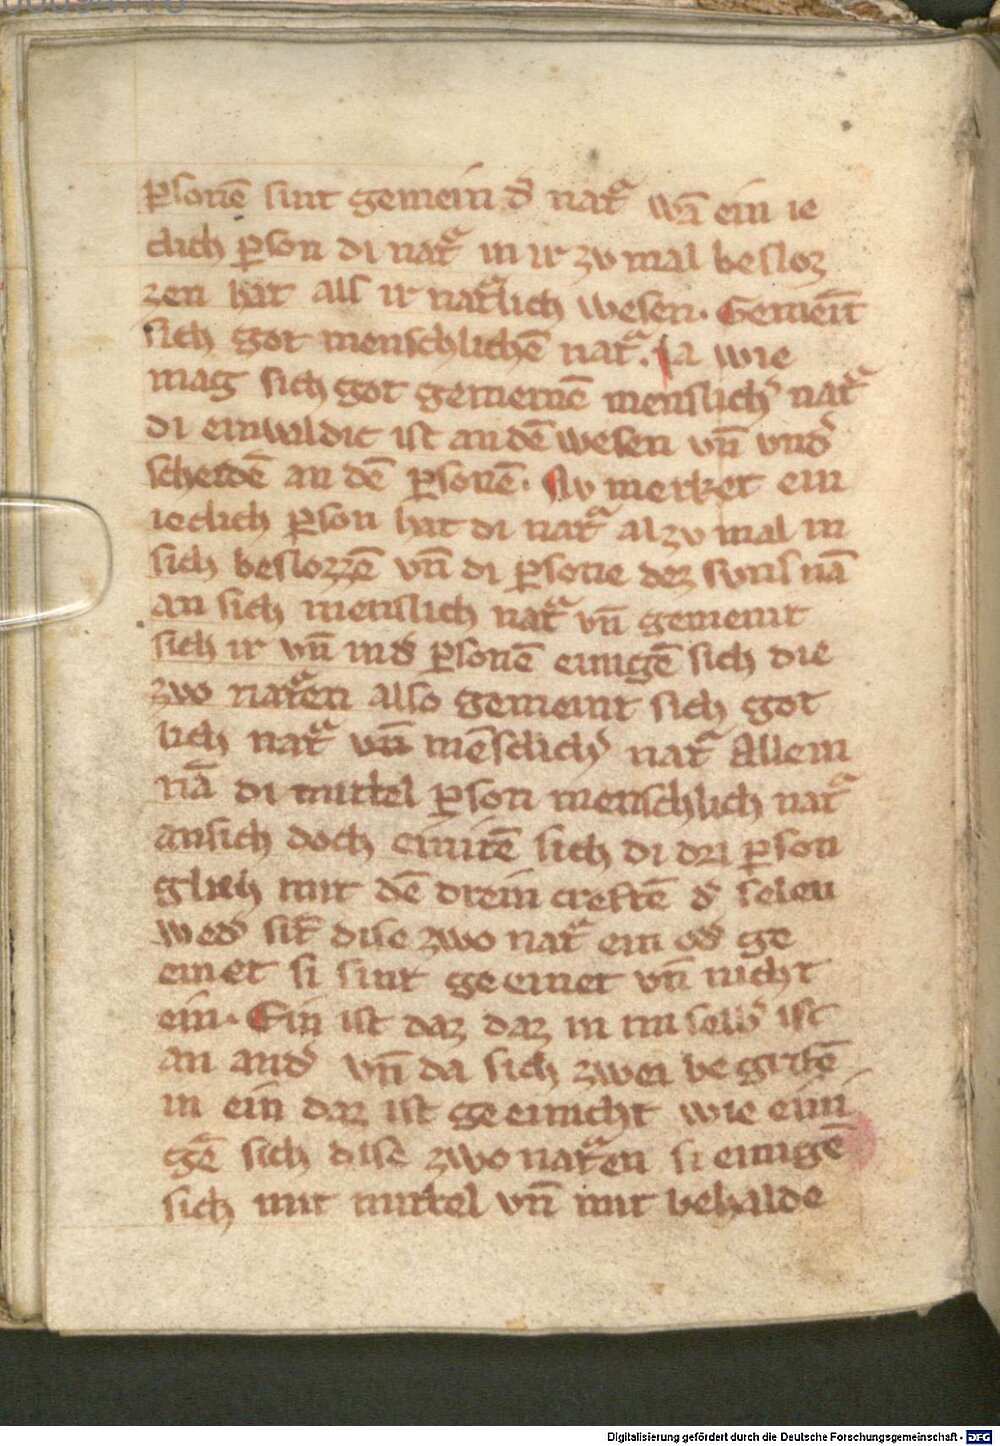 ꝑsonē sint gemein dˀ natᵃ wā ein ie
clich ꝑson di natᵃ in ir zv mal besloz
zen hat als ir natᵃlich wesen. Gemeīt
sich got menschlichē natᵃ. ja wie
mag sich got gemeinē menslichˀ natᵃ
di einvaldic ist an dē wesen vn̄ vndˀ
scheidē an dē ꝑsonē. Nv merket ein
ieclich ꝑson hat di natᵃ alzv mal in
sich beslozzē vn̄ di ꝑsone dez svns nā
an sich menslich natᵃ vn̄ gemeint
sich ir vn̄ in dˀ ꝑsonē einigē sich die
zwo natᵃen also gemeint sich got
lich natᵃ vn̄ mēsclichˀ natᵃ Allein
nā di mittel ꝑson menschlich natᵃ
ansich doch einitē sich di dri ꝑson
glich mit dē drein creftē dˀ selen
wedˀ sīt dise zwo natᵃ ein odˀ ge
einet si sint geeinet vn̄ nicht
ein. Ein ist daz daz in im selbˀ ist
an andˀ vn̄ da sich zwei begirtē
in ein daz ist geeinicht wie eini
gē sich dise zwo natᵃen si einigē
sich mit mittel vn̄ mit behalde
Digitalisierung gefördert durch die Deutsche Forschungsgemeinschaft - DFG